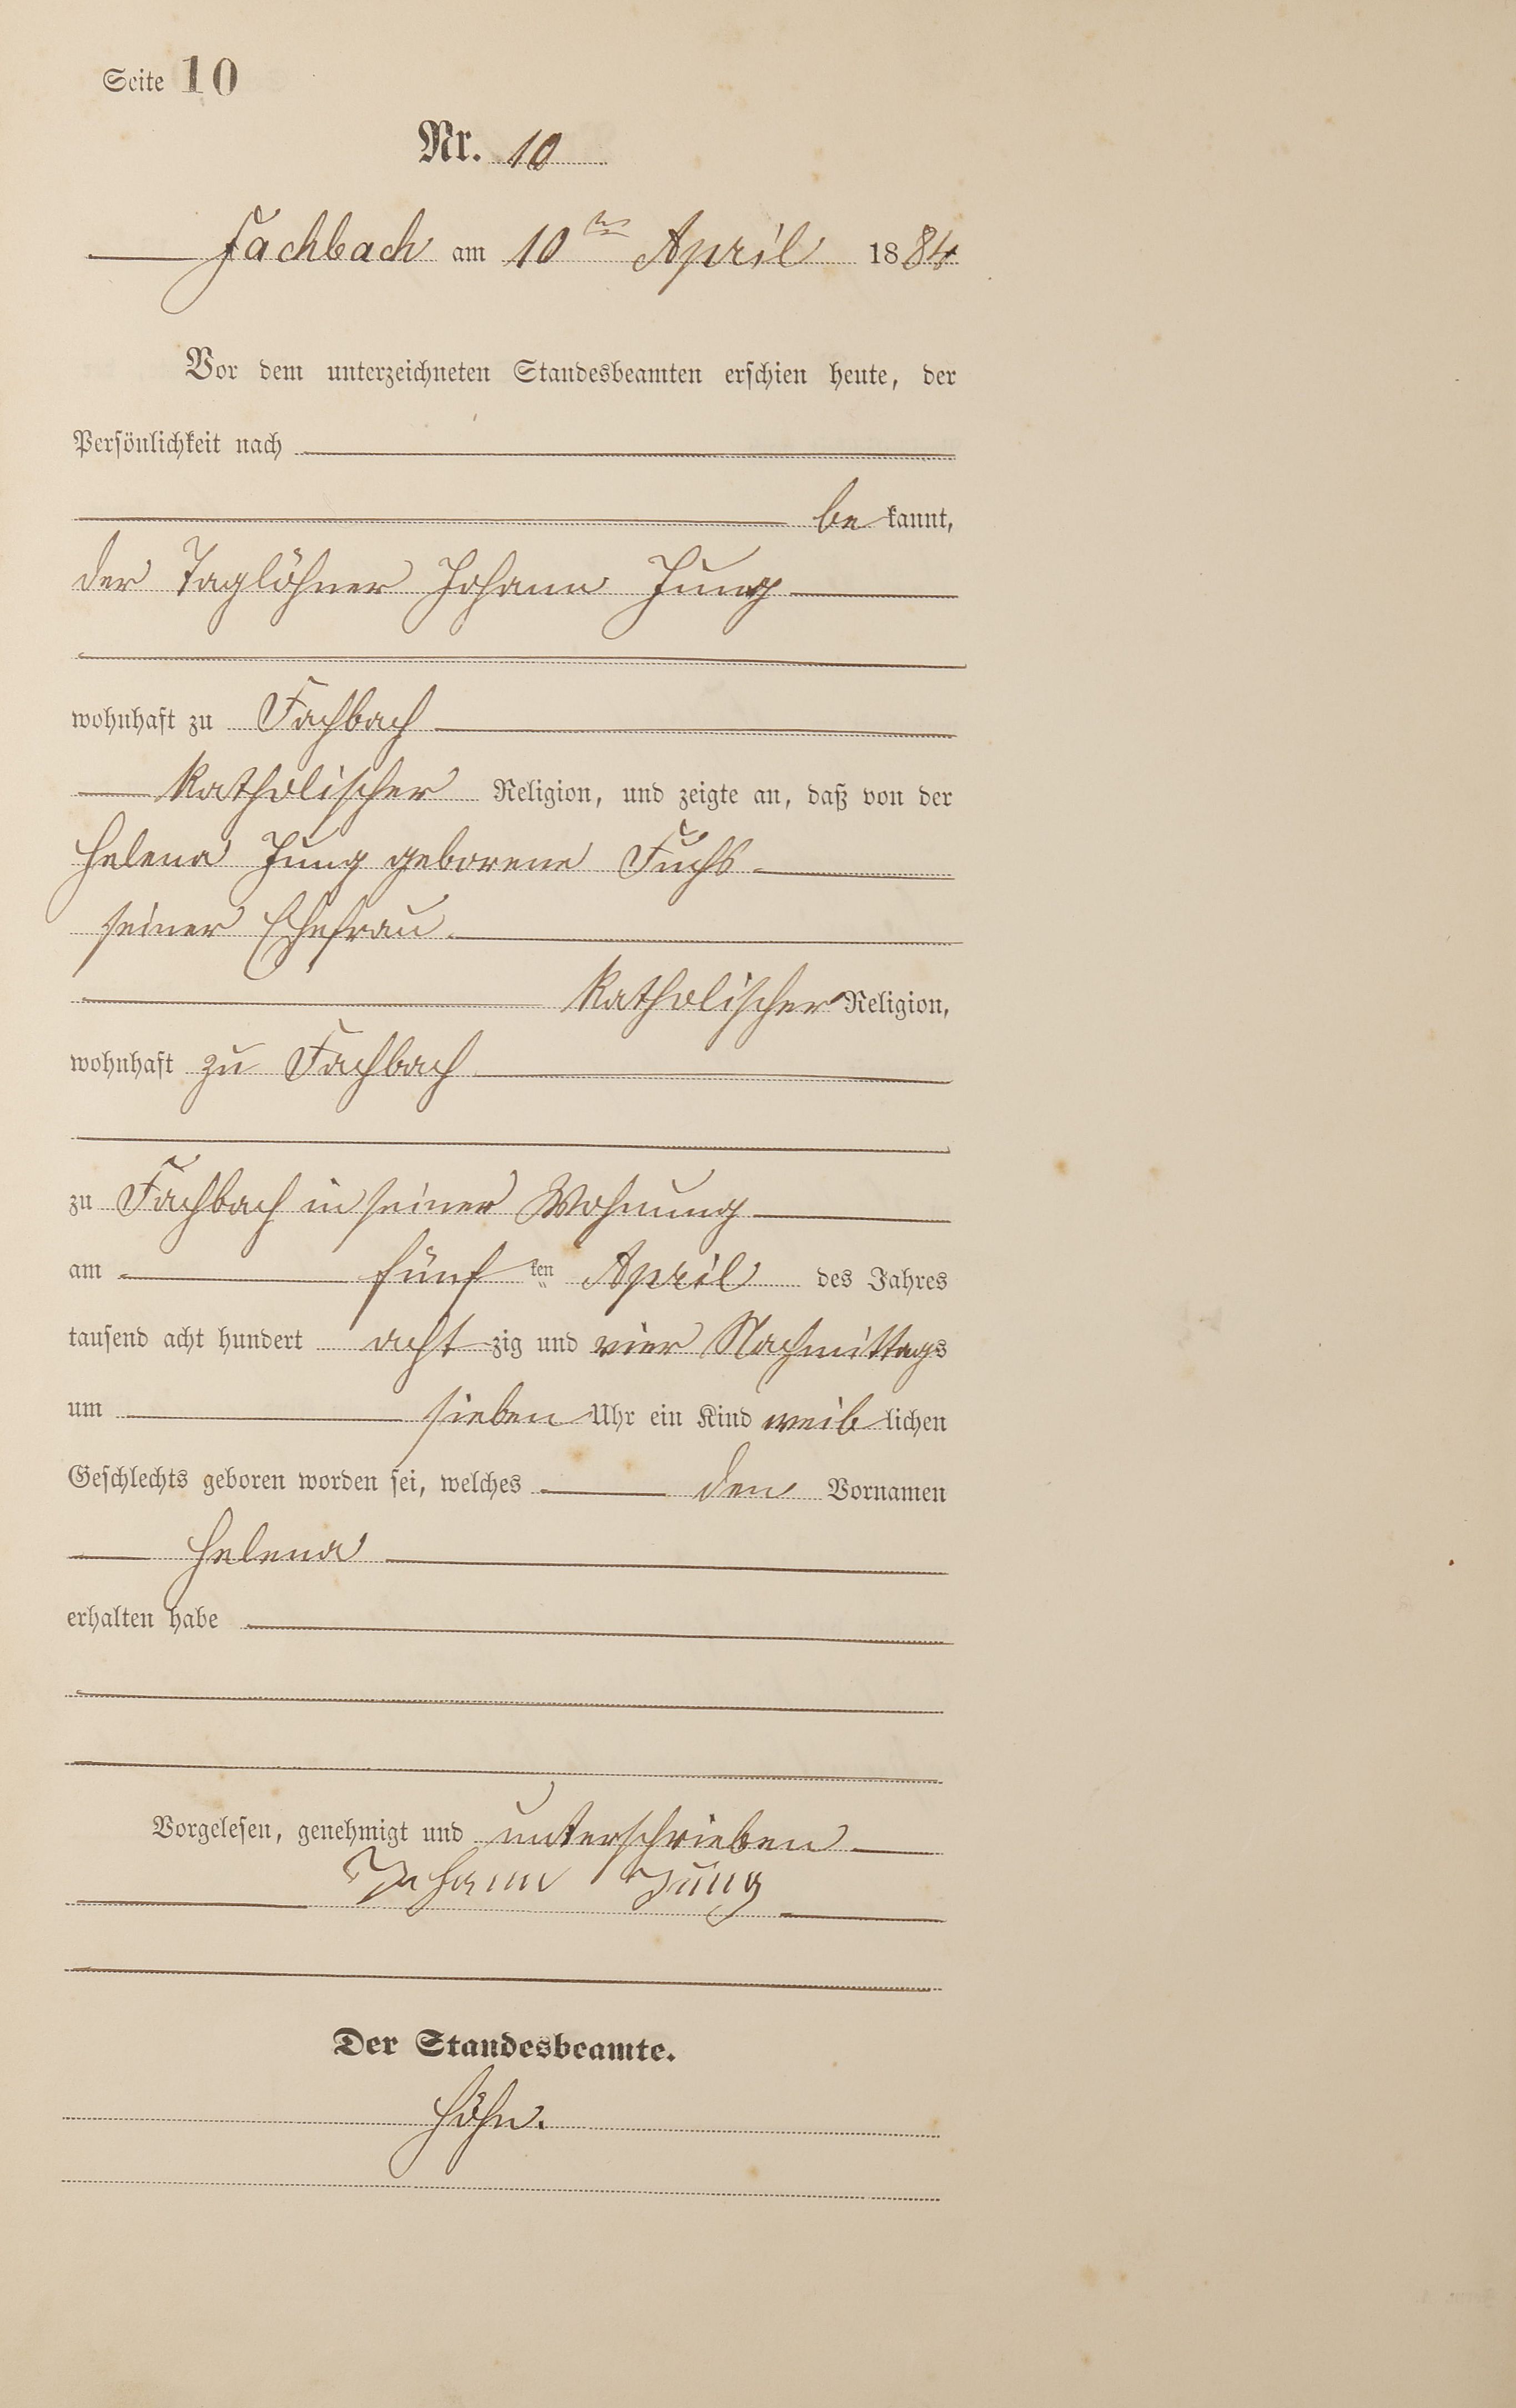 Seite 10
Nr. 10
Fachbach am 10ten April 1884
Vor dem unterzeichneten Standesbeamten erschien heute, der
Persönlichkeit nach
be kannt,
der Taglöhner Johann Jung
wohnhaft zu Fachbach
katholischer Religion, und zeigte an, daß von der
Helena Jung geborene Fuchs
seiner Ehefrau
katholischer Religion,
wohnhaft zu Fachbach
zu Fachbach in seiner Wohnung
am fünften April des Jahres
tausend acht hundert acht zig und vier Nachmittags
um sieben Uhr ein Kind weib lichen
Geschlechts geboren worden sei, welches den Vornamen
Helena
erhalten habe
Vorgelesen, genehmigt und unterschrieben
Johann Jung
Der Standesbeamte.
Höhn.